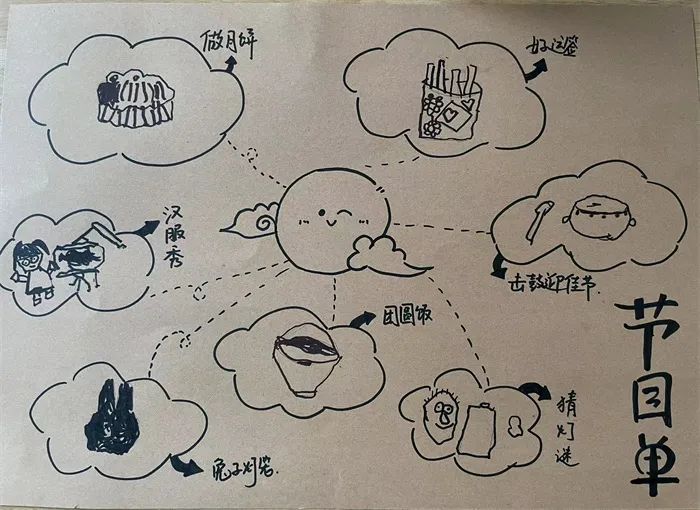 做月饼
好运签
汉服秀
击鼓迎佳节.
团圆饭
猜灯谜
兔子灯笼.
节目单